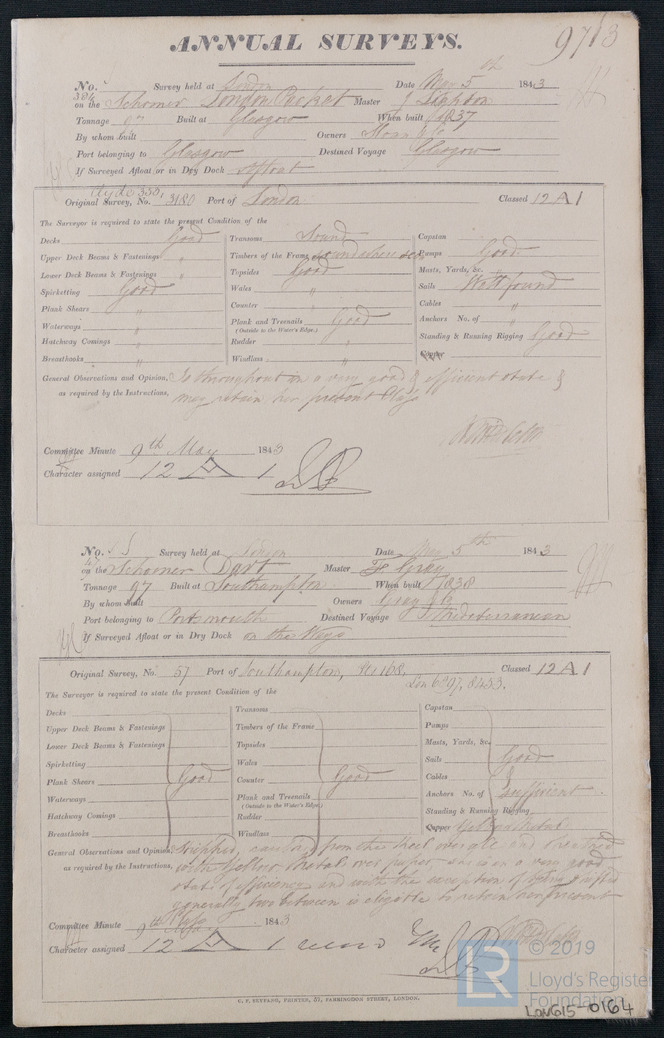 ANNUAL SURVEYS.
9713
No. Survey held at London Date May 5th 1843
384
on the Schooner London Packet Master J Dighton
Tonnage 97 Built at Glasgow When built 1837
By whom built Owners
Port belonging to Glasgow Destined Voyage Glasgow
If Surveyed Afloat or in Dry Dock afloat
Clyde 333,
Original Survey, No. 3180 Port of London Classed 12 A 1
The Surveyor is required to state the present Condition of the
Decks Good Transoms Sound Capstan
Upper Deck Beams & Fastenings " Timbers of the Frame sound where seen Pumps Good
Lower Deck Beams & Fastenings " Topsides Good Masts, Yards, &c. "
Spirketting Good Wales " Sails Well found
Plank Shears " Counter " Cables "
Waterways " Plank and Treenails Good Anchors No. of "
(Outside to the Water's Edge.)
Hatchway Comings " Rudder " Standing & Running Rigging Good
Breasthooks " Windlass " Copper
General Observations and Opinion, Is throughout in a very good & efficient state &
as required by the Instructions, may retain her present Class
Committee Minute 9th May 1843
Character assigned 12 A 1
No. Survey held at London Date May 5th 1843
on the Schooner Dart Master
Tonnage 97 Built at Southampton When built 1838
By whom built Owners
Port belonging to Portsmouth Destined Voyage Mediterranean
If Surveyed Afloat or in Dry Dock on the Ways
Original Survey, No. 57 Port of Southampton, No 168, Classed 12 A 1
Lon 6 97, 8453.
The Surveyor is required to state the present Condition of the
Decks Transoms Capstan
Upper Deck Beams & Fastenings Timbers of the Frame Pumps
Lower Deck Beams & Fastenings Topsides Masts, Yards, &c.
Spirketting Wales Sails Good
Plank Shears Good Counter Good Cables &
Waterways Plank and Treenails Anchors No. of sufficient
(Outside to the Water's Edge.)
Hatchway Comings Rudder Standing & Running Rigging
Breasthooks Windlass Copper Yellow Metal
General Observations and Opinion, Stripped, caulked from the keel upwards and sheathed
as required by the Instructions, with Yellow Metal over paper she is in a very good
state of efficiency and with the exception of being
generally is eligible to retain her present
Class
Committee Minute 9th May 1843
Character assigned 12 A 1
C. F. SEYFANG, PRINTER, 57, FARRINGDON STREET, LONDON.
LR
© 2019
Lloyd's Register
Foundation
LON615-0164